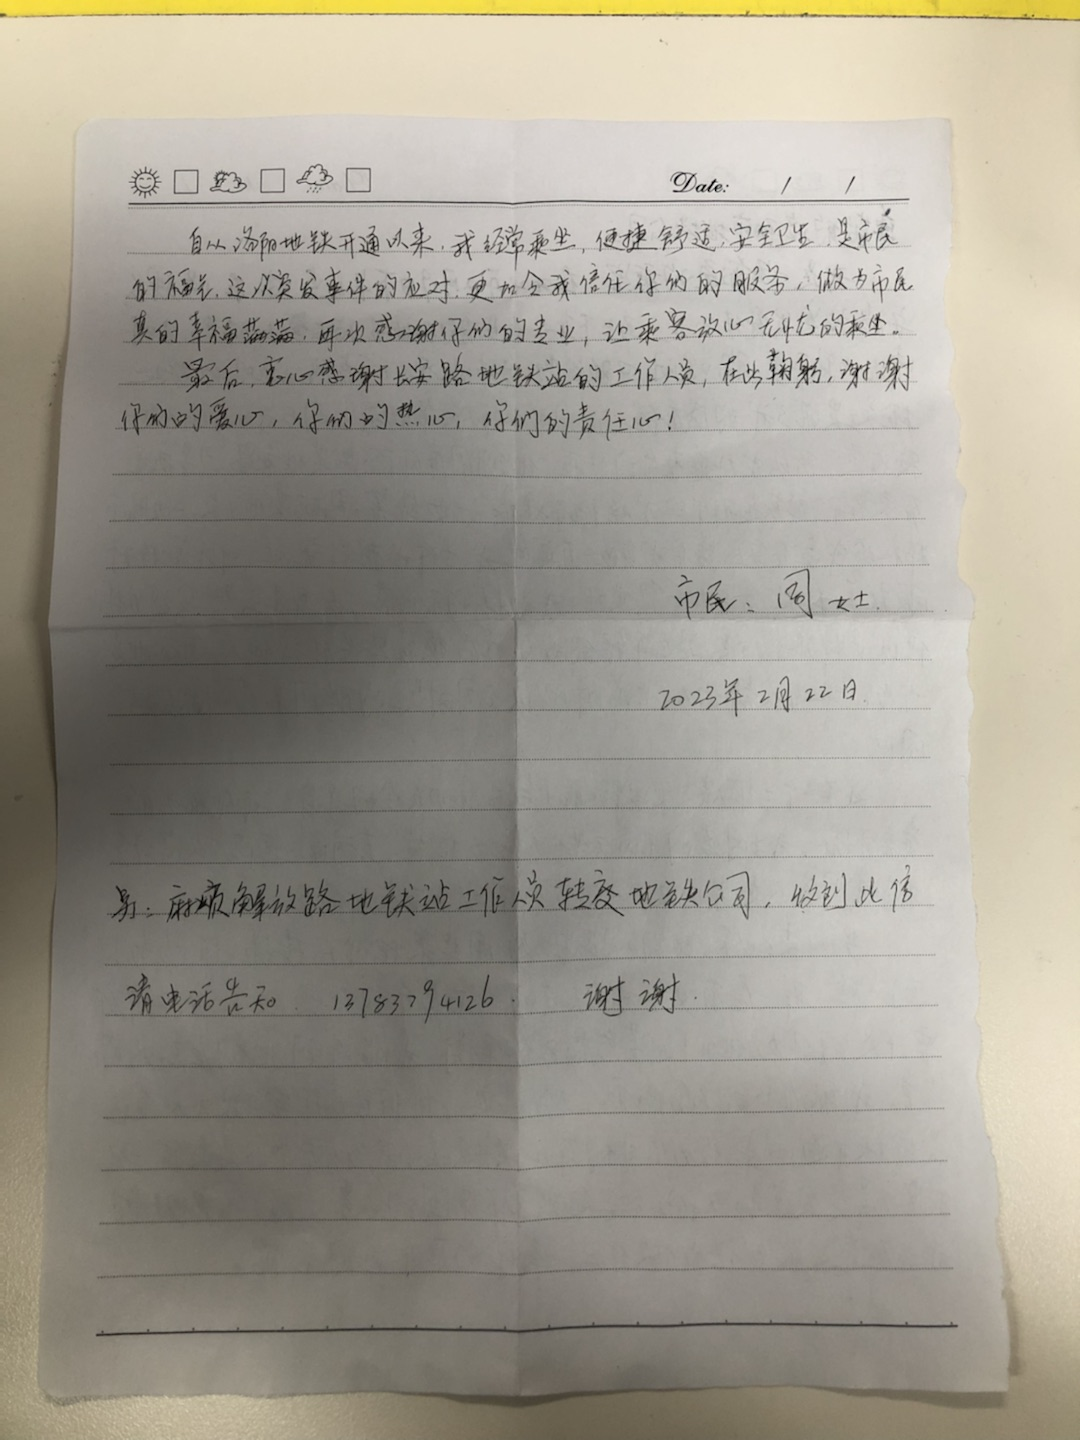 Date: / /
自从洛阳地铁开通以来，我经常乘坐，便捷舒适，安全卫生，是市民
的福气，这次突发事件的应对，更加令我信任你们的服务，做为市民
真的幸福满满，再次感谢你们的专业，让乘客放心无忧的乘坐。
最后，衷心感谢长安路地铁站的工作人员，在此鞠躬，谢谢
你们的爱心，你们的热心，你们的责任心！
市民：周女士.
2023年2月22日.
另：麻烦解放路地铁站工作人员转交地铁公司，收到此信
请电话告知. 13783794126. 谢谢.